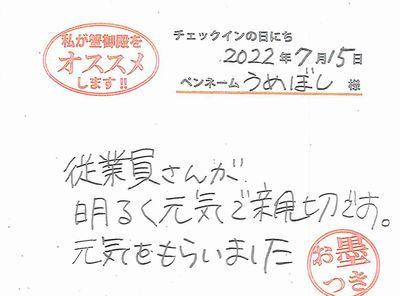 私が蟹御殿を
オススメ
します!!
チェックインの日にち
2022年7月15日
ペンネーム うめぼし 様
従業員さんが
明るく元気で親切です。
元気をもらいました
お墨
つき